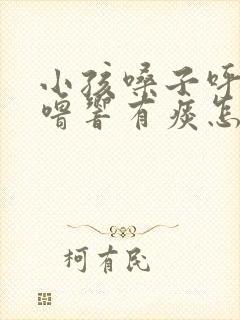 小孩嗓子呼
噜响有痰怎
柯有民